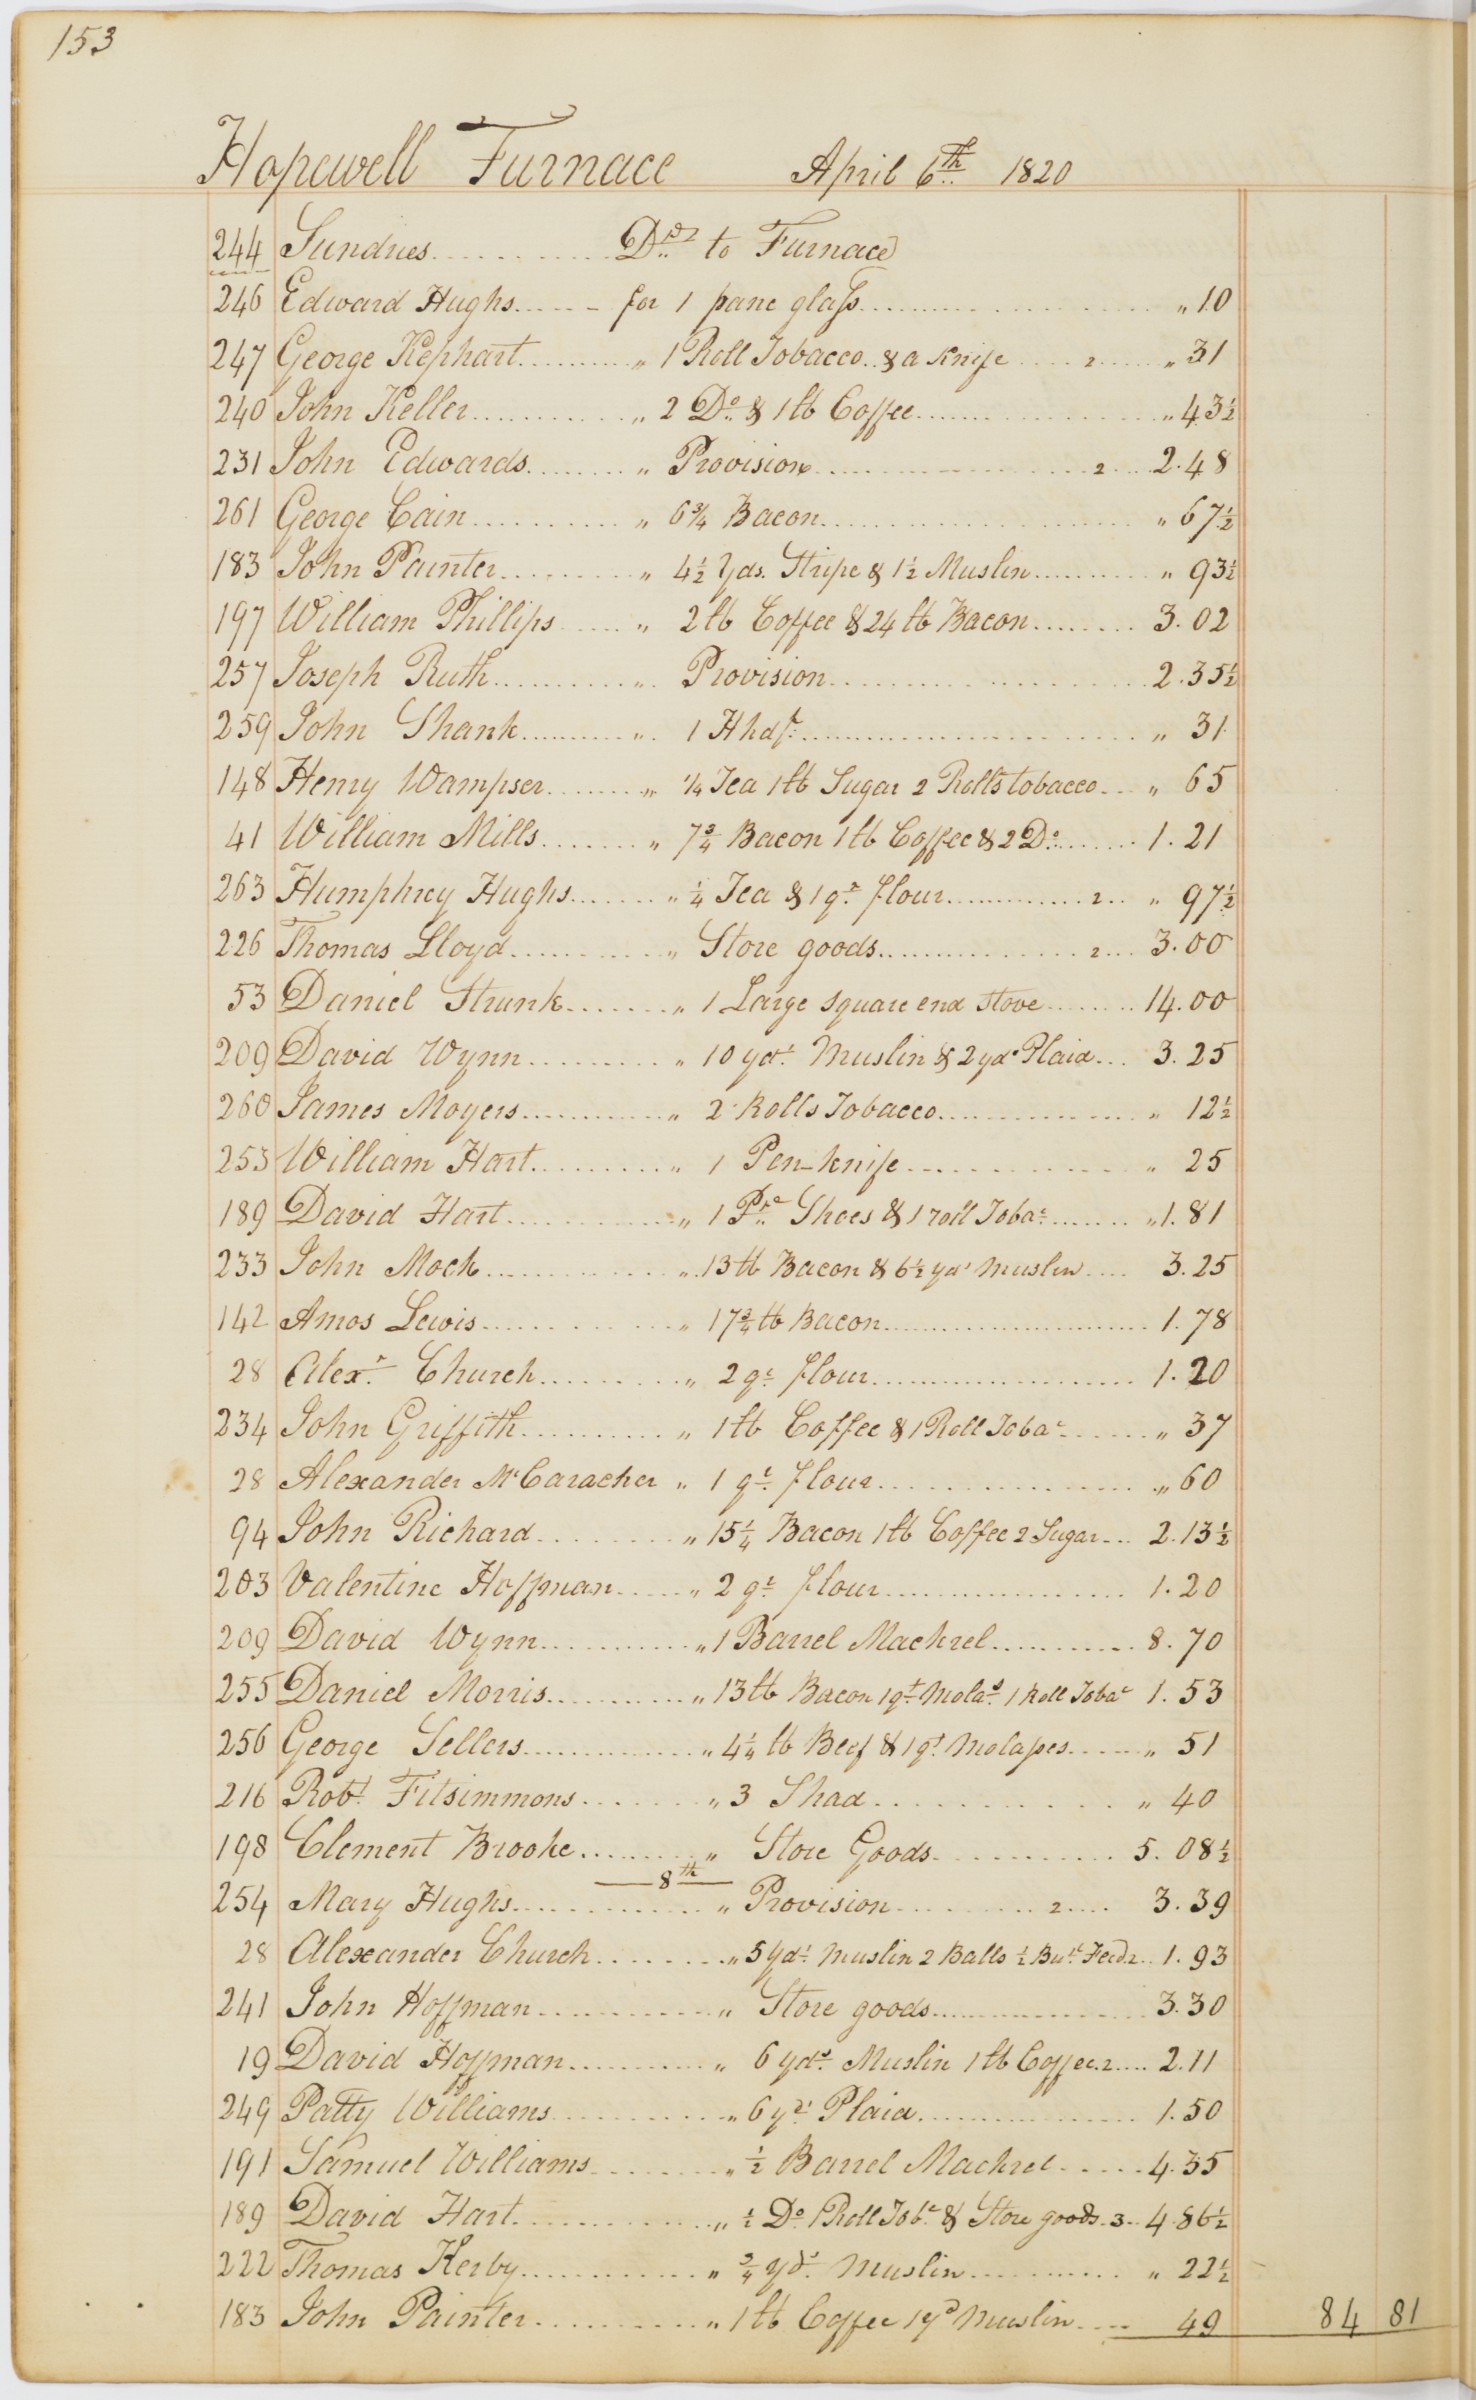 153
Hopewell Furnace April 6th 1820
244 Sundries Drs to Furnace
246 Edward Hughs for 1 pane glass " 10
247 George Kephart " 1 Roll Tobacco & a Knife 2 " 31
240 John Keller " 2 Do & 1 lb Coffee " 43 1/2
231 John Edwards " Provision 2 2.48
261 George Cain " 6 3/4 Bacon " 67 1/2
183 John Painter " 4 1/2 Yds. Stripe & 1 1/2 Muslin " 93 1/2
197 William Phillips " 2 lb Coffee & 24 lb Bacon 3.02
257 Joseph Ruth " Provision 2.35 1/2
259 John Shank " 1 Hhdf " 31
148 Henry Wampser " 1/4 Tea 1 lb Sugar 2 Rolls tobacco " 65
41 William Mills " 7 3/4 Bacon 1 lb Coffee & 2 Do 1.21
263 Humphrey Hughs " 1/4 Tea & 1 qr flour 2 " 97 1/2
226 Thomas Lloyd " Store goods 2 3.00
53 Daniel Strunk " 1 Large square end stove 14.00
209 David Wynn " 10 yds Muslin & 2 yds Plaid 3.25
260 James Moyers " 2 Rolls Tobacco " 12 1/2
253 William Hart " 1 Pen-knife " 25
189 David Hart " 1 Pr Shoes & 1 roll Tobac " 1.81
233 John Mock " 13 lb Bacon & 6 1/2 yds muslin 3.25
142 Amos Lewis " 17 3/4 lb Bacon 1.78
28 Alexr Church " 2 qr flour 1.20
234 John Griffith " 1 lb Coffee & 1 Roll Tobac " 37
28 Alexander McCaracher " 1 qr flour " 60
94 John Richard " 15 1/4 Bacon 1 lb Coffee 2 Sugar 2.13 1/2
203 Valentine Hoffman " 2 qr flour 1.20
209 David Wynn " 1 Barrel Mackrel 8.70
255 Daniel Morris " 13 lb Bacon 1 qt Molas 1 Roll Tobac 1.53
256 George Sellers " 4 1/4 lb Beef & 1 qt Molasses " 51
216 Robt Fitsimmons " 3 Shad " 40
198 Clement Brooke " Store Goods 5.08 1/2
8th
254 Mary Hughs " Provision 2 3.39
28 Alexander Church " 5 Yds Muslin 2 Balls 1/2 Bul Feed 2 1.93
241 John Hoffman " Store goods 3.30
19 David Hoffman " 6 yds Muslin 1 lb Coffee 2 2.11
249 Patty Williams " 6 yds Plaid 1.50
191 Samuel Williams " 1/2 Barrel Mackrel 4.35
189 David Hart " 1/2 Do 1 Roll Tobc & Store goods 3 4.86 1/2
222 Thomas Kerby " 3/4 yds Muslin " 22 1/2
183 John Painter " 1 lb Coffee 1 yd Muslin 49 84 81